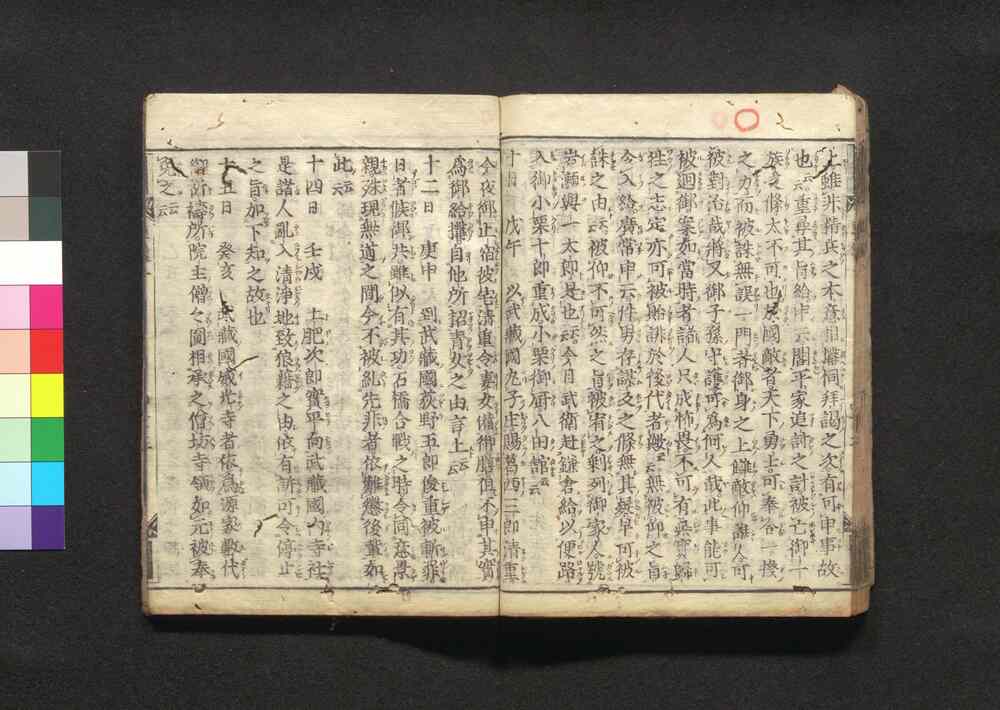 上雖非精兵之本意相構伺拝謁之次有可申事故
也云云重尋其旨給申云閣平家追討之計被亡御一
族之條太不可也於國敵者天下勇士可奉合一揆
之力而被誅無誤一門者御身之上讎敵仰誰人可
被對治哉將又御子孫守護可為何人哉此事能可
被廻御案如當時者諸人只成怖畏不可有真實歸
往之志定亦可被貽誹於後代者歟云云無被仰之旨
今入給廣常申云件男存謀反之條無其疑早可被
誅之由云云被仰不可然之旨被宥之剰列御家人號
岩瀬與一太郎是也云云今日武衛赴鎌倉給以便路
入御小栗十郎重成小栗御厨八田館云云
十日　戊午　以武藏國丸子庄賜葛西三郎清重
今夜御止宿彼宅清重令妻女備御膳但不申其實
為御給搆自他所招青女之由言上云云
十二日　庚申　到武藏國荻野五郎俊重被斬罪
日者候御共雖似有其功石橋合戰之時令同意景
親殊現無道之間今不被糺先非者依難懲後輩如
此云云
十四日　壬戌　土肥次郎實平向武藏國內寺社
是諸人亂入清浄地致狼藉之由依有訴可令停止
之旨加下知之故也
十五日　癸亥　武藏國威光寺者依為源家數代
御祈禱所院主僧之圓相承之僧坊寺領如元被奉
免之云云